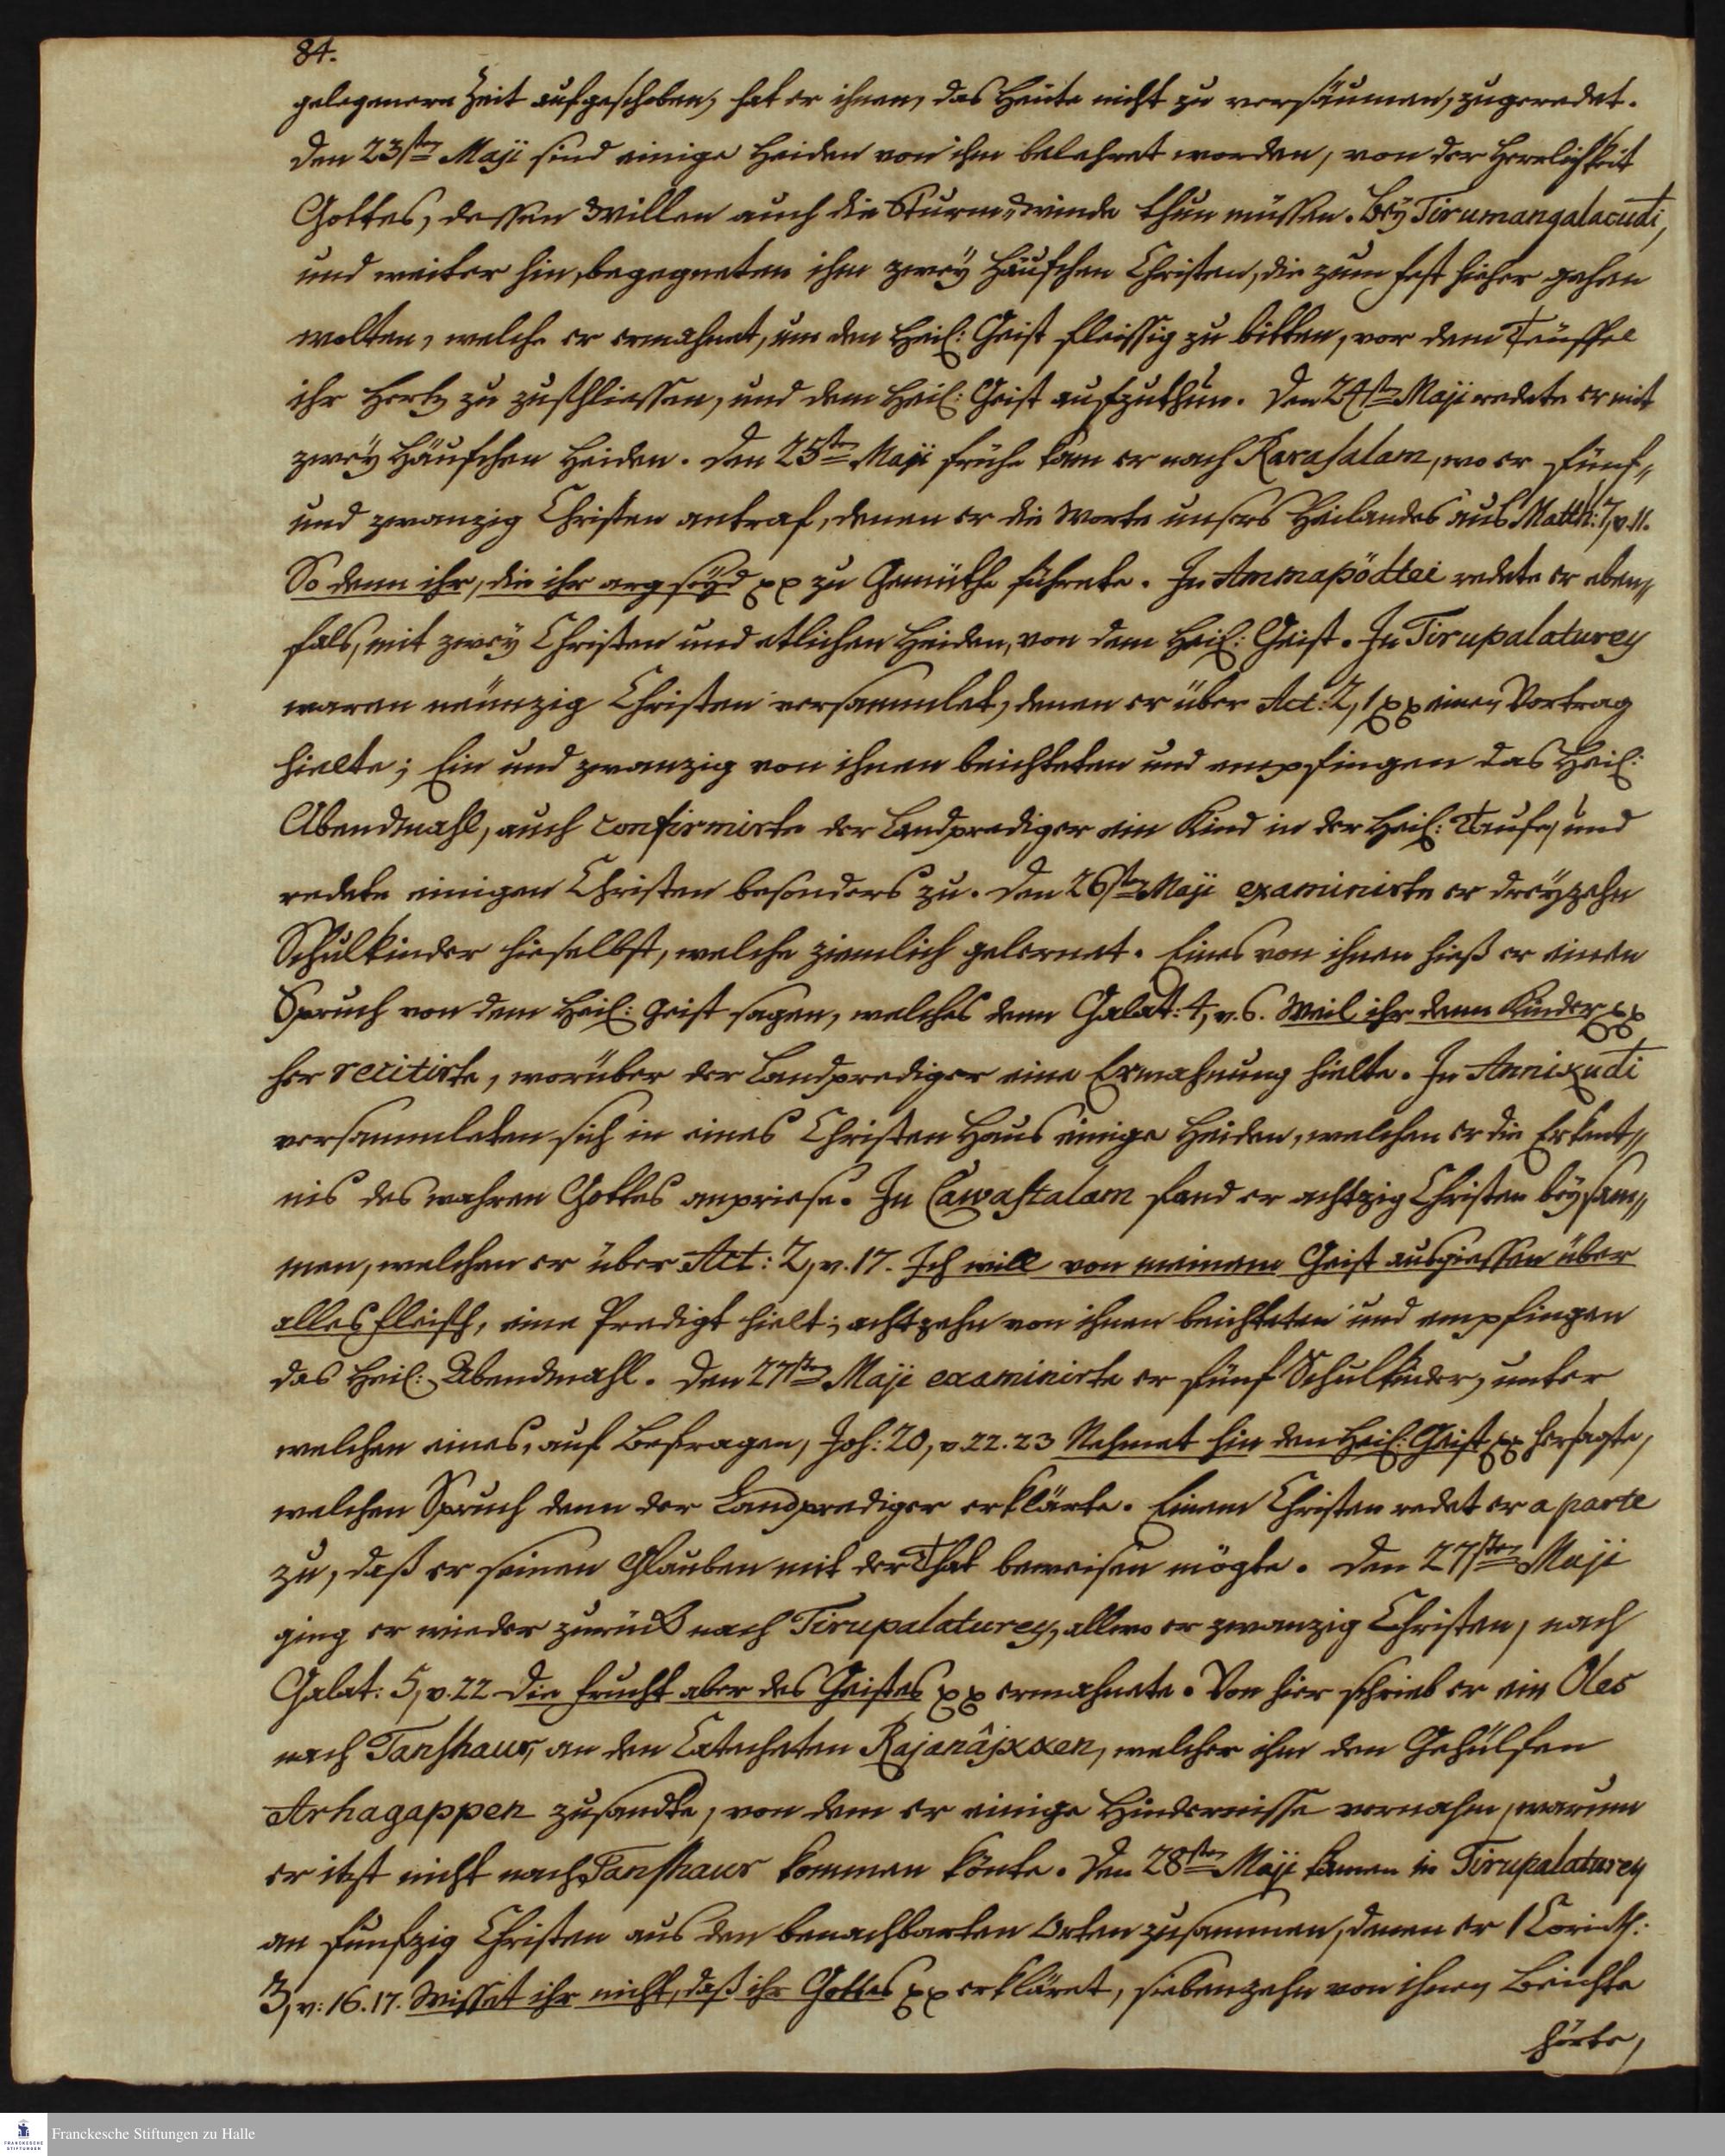 84.
gelegenere Zeit aufgeschoben, hat er ihnen, das Heute nicht zu versäumen, zugeredet.
Den 23sten Maji sind einige Heiden von ihm belehret worden, von der Herrlichkeit
Gottes, dessen Willen auch die Sturm-winde thun müssen. Beÿ Tirumangalacudi,
und weiter hin, begegneten ihm zweÿ Häufchen Christen, die zum Fest hieher gehen
wolten, welche er ermahnet, um den Heil: Geist fleissig zu bitten, vor dem Teuffel
ihr Hertz zu zuschliessen, und dem Heil: Geist aufzuthun. Den 24sten Maji redete er mit
zweÿ Häufchen Heiden. Den 25sten Maji frühe kam er nach Karasalam, wo er fünf-
und zwanzig Christen antraf, denen er die Worte unsers Heilandes aus Matth: 7, v. 11.
So denn ihr, die ihr arg seÿd xx zu Gemüthe führete. In Ammapöttei redete er eben-
fals, mit zweÿ Christen und etlichen Heiden, von dem Heil: Geist. In Tirupalaturey
waren neunzig Christen versammlet, denen er über Act: 2, 1 xx einen Vortrag
hielte; Ein und zwanzig von ihnen beichteten und empfingen das Heil:
Abendmahl, auch confirmirte der Landprediger ein Kind in der Heil: Taufe, und
redete einigen Christen besonders zu. Den 26sten Maji examinirte er dreÿzehn
Schulkinder hieselbst, welche ziemlich gelernet. Eines von ihnen hieß er einen
Spruch von dem Heil: Geist sagen, welches denn Galat: 4, v. 6. Weil ihr denn Kinder xx
her recitirte, worüber der Landprediger eine Ermahnung hielte. In Annixudi
versammleten sich in eines Christen Haus einige Heiden, welchen er die Erkent-
nis des wahren Gottes anpriese. In Cawastalam fand er achtzig Christen beÿsam-
men, welchen er über Act: 2, v. 17. Ich will von meinem Geist ausgiessen über
alles Fleisch, eine Predigt hielt; achtzehn von ihnen beichteten und empfingen
das Heil: Abendmahl. Den 27sten Maji examinirte er fünf Schulkinder, unter
welchen eines, auf Befragen, Joh: 20, v. 22. 23 Nehmet hin den Heil: Geist xx hersagte,
welchen Spruch denn der Landprediger erklärte. Einem Christen redet er a parte
zu, daß er seinen Glauben mit der That beweisen mögte. Den 27sten Maji
ging er wieder zurück nach Tirupalaturey, allwo er zwanzig Christen, nach
Galat: 5, v. 22 Die Frucht aber des Geistes xx ermahnete. Von hier schrieb er ein Oles
nach Tanshaur, an den Catecheten Rajanâjxxen, welcher ihm den Gehülfen
Arhagappen zusandte, von dem er einige Hindernisse vernahm, warum
er itzt nicht nach Tanshaur kommen könte. Den 28sten Maji kamen in Tirupalaturey
an funfzig Christen aus den benachbarten Orten zusammen, denen er 1 Corinth:
3, v: 16. 17. Wisset ihr nicht, daß ihr Gottes xx erkläret, siebenzehn von ihnen Beichte
hörte,
Franckesche Stiftungen zu Halle